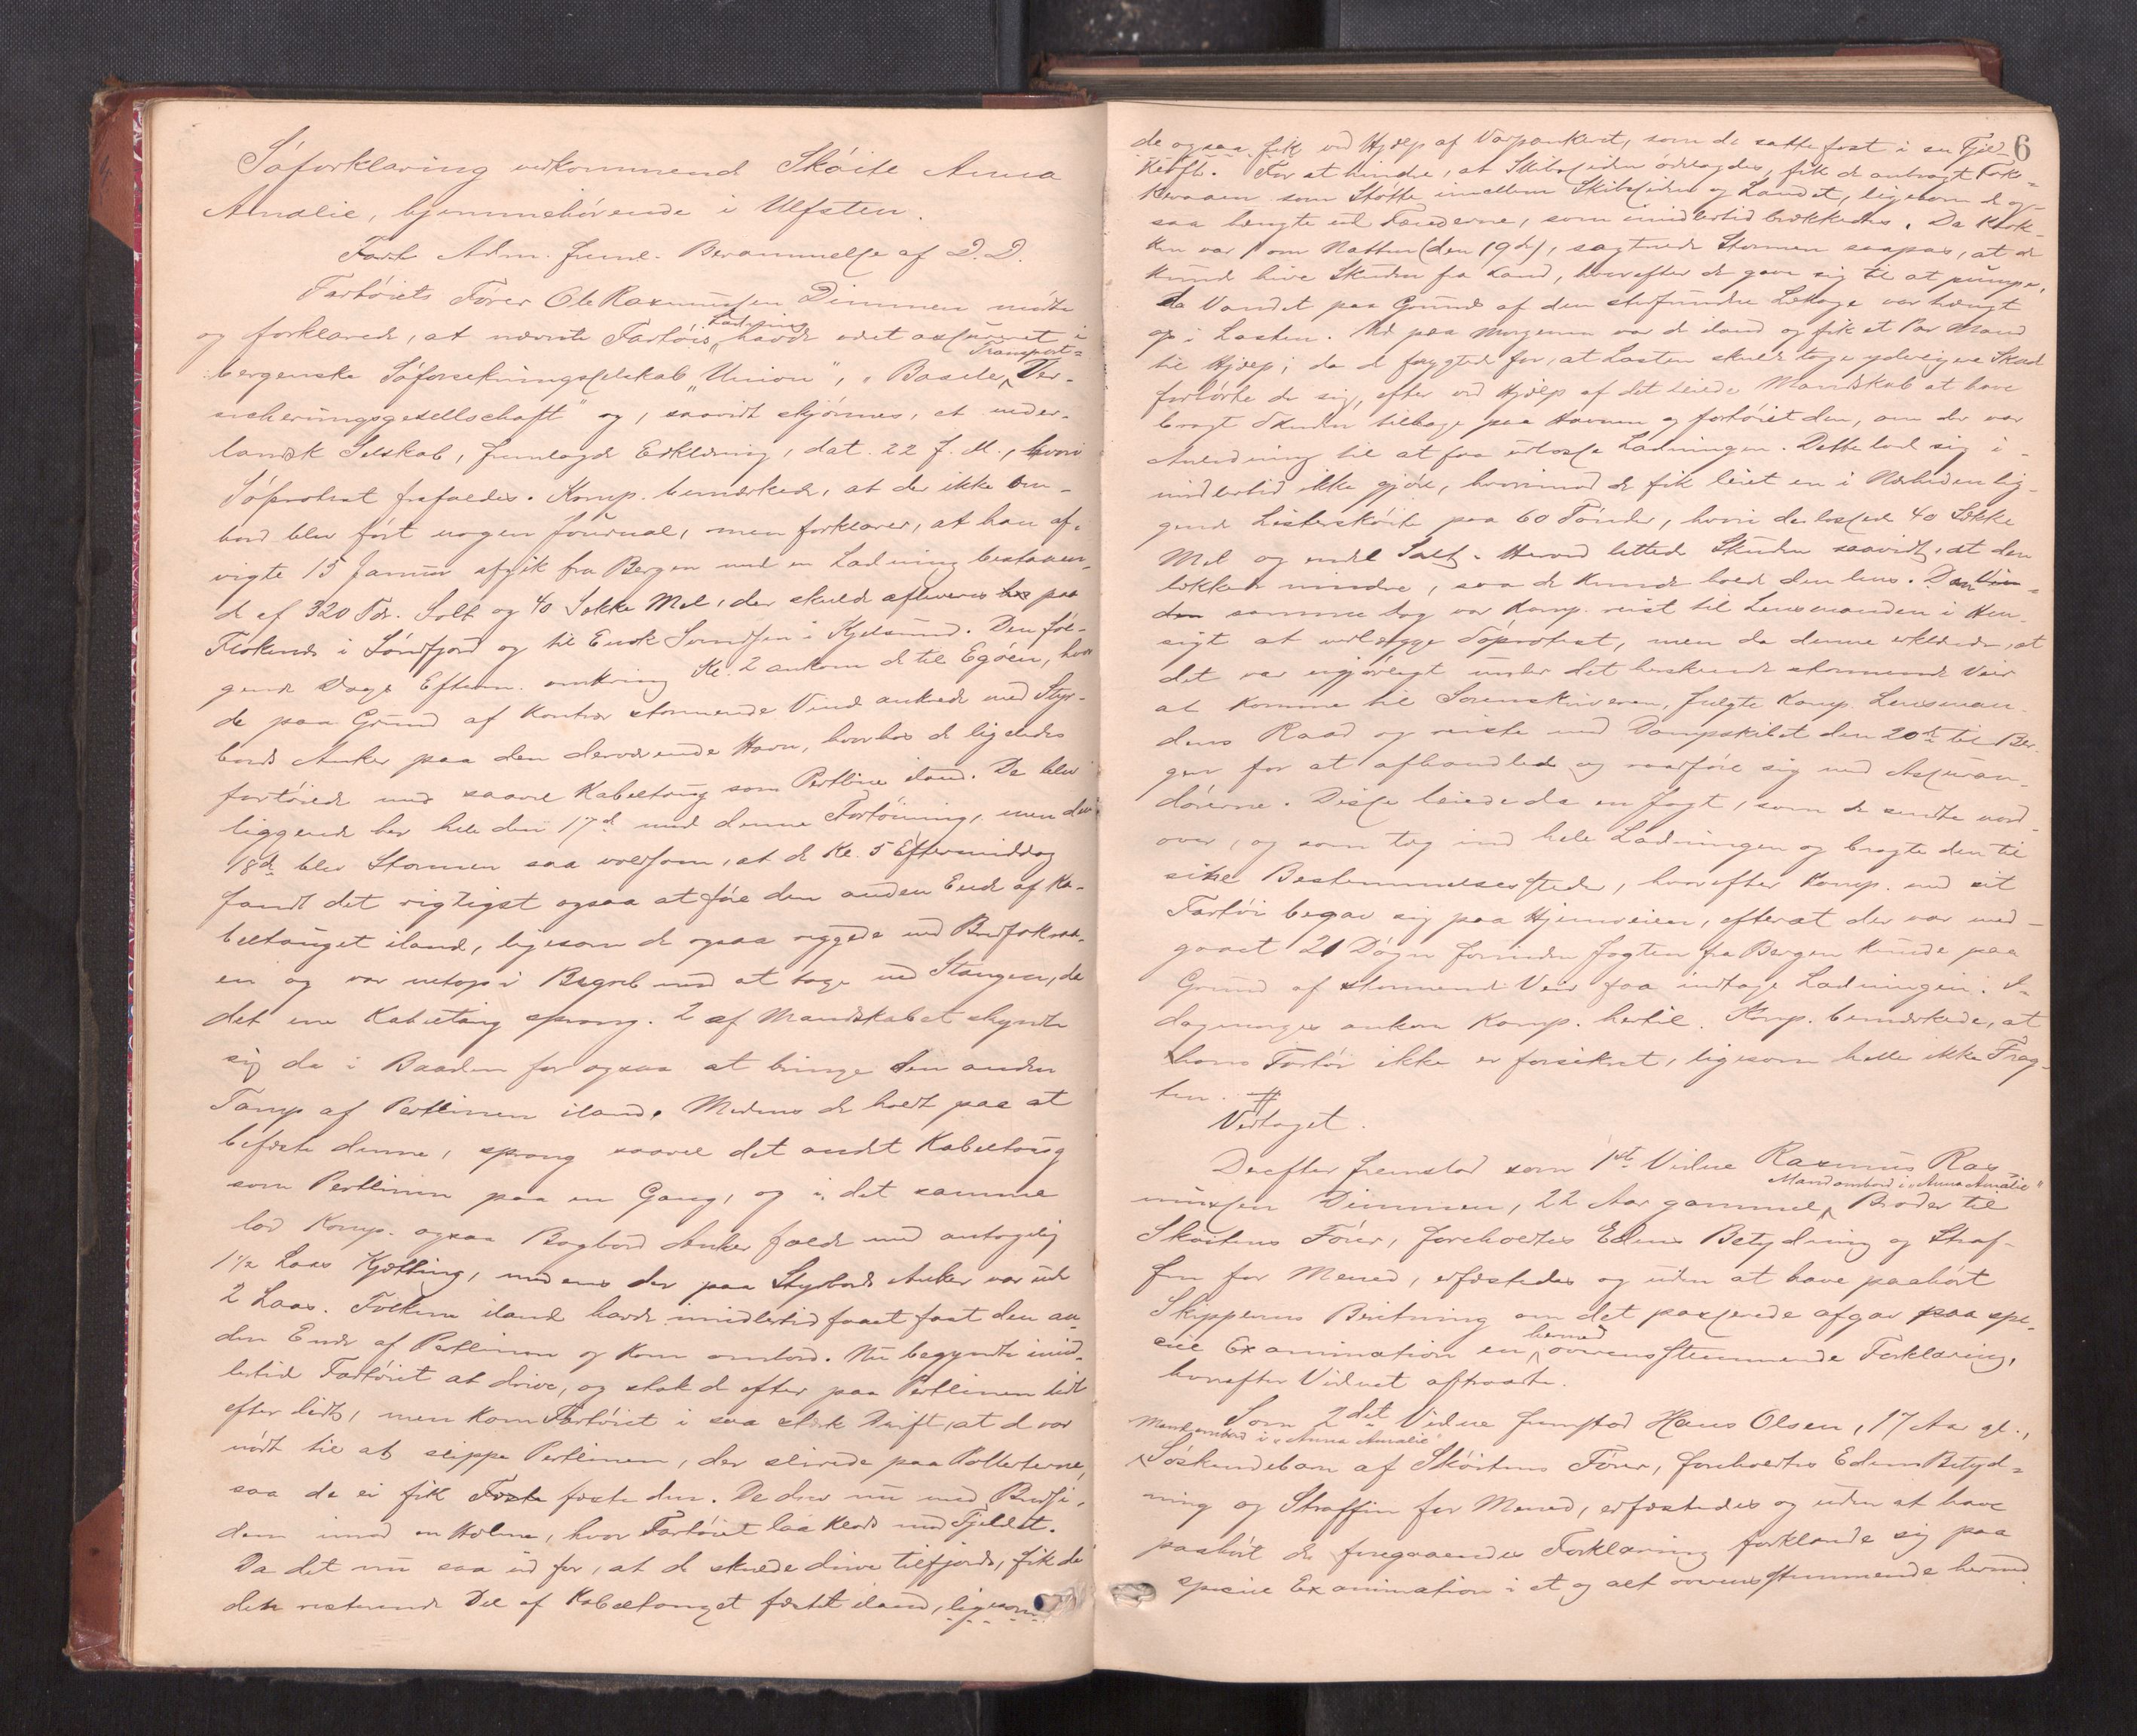 Søforklaring vedkommende Skøite Anna
Amalie, hjemmehørende i Ulfsten.
Forh. Adm. freml. Berammelse af D.D.
Fartøiets Fører Ole Rasmussen Dimmen mødte
og forklarede, at nævnte Fartøis Ladning havde været assureret i
bergenske Søforsikringsselskab „Union“, „Baseler Transport-Ver-
sicherungsgesellschaft“ og, saavidt skjønnes, et neder-
landsk Selskab, fremlagde Erklæring, dat. 22 f. M., hvori
Søprotest frafaldes. Komp. bemærkede, at der ikke om-
bord blev ført nogen Journal, men forklarer, at han af-
vigte 15 Januar afgik fra Bergen med en Ladning bestaaen-
de af 320 Tdr. Salt og 40 Sække Mel, der skulde afleveres paa
Florelandet i Søndfjord og til Enok Svendsen i Kjelsund. Den føl-
gende Dags Efterm. omkring Kl. 2 ankom de til Egøen, hvor
de paa Grund af kontrær stormende Vind ankrede med Styr-
bords Anker paa den derværende Havn, hvorhos de ligeledes
fortøiede med saavel Kabeltoug som Pertline iland. De blev
liggende her hele den 17de med denne Fortøining, men den
18de blev Stormen saa voldsom, at de Kl. 5 Eftermiddag
fandt det rigtigst ogsaa at føre den anden Ende af Ka-
beltouget iland, ligesom de ogsaa riggede ned Bredfokraa-
en og var netop i Begreb med at tage ned Stangen, da
det ene Kabeltoug sprang. 2 af Mandskabet skyndte
sig da i Baaden for ogsaa at bringe den anden
Tamp af Pertlinen iland. Medens de holdt paa at
befæste denne, sprang saavel det andet Kabeltoug
som Pertlinen paa en Gang, og i det samme
lod Komp. ogsaa Bagbord Anker falde med antagelig
1½ Laas Kjetting, medens der paa Styrbords Anker var ude
2 Laas. Folkene iland havde imidlertid faaet fast den an
den Ende af Pertlinen og kom ombord. Nu begyndte imid-
lertid Fartøiet at drive, og stak de efter paa Pertlinen lidt
efter lidt, men kom Fartøiet i saa stærk Drift, at de var
nødt til at slippe Pertlinen, der slirede paa Pollerterne,
saa de ei fik Feste feste den. De drev nu med Bredsi-
den imod en Holme, hvor Fartøiet laa klods mod Fjeldet.
Da det nu saa ud for, at de skulde drive tilfjords, fik de
den resterende Del af Kabeltouget fæstet iland, ligesom
6
de ogsaa fik ved Hjælp af Varpankeret, som de satte fast i en Fjeld-
kløft. For at hindre, at Skibssiden ødelagdes, fik de anbragt Fok-
keraaen som Støtte imellem Skibssiden og Landet, ligesom de og-
saa hængte ud Fenderne, som imidlertid brækkedes. Da Klok-
ken var 1 om Natten (den 19de), sagtnede Stormen saapas, at de
kunde hive Skuden fra Land, hvorefter de gave sig til at pumpe,
da Vandet paa Grund af den stedfundne Lækage var trængt
op i Lasten. Ud paa Morgenen var de iland og fik et Par Mand
til Hjælp; da de frygtede for, at Lasten skulde tage yderligere Skade
forhørte de sig, efter ved Hjælp af det leiede Mandskab at have
bragt Skuden tilbage paa Havnen og fortøiet den, om der var
Anledning til at faa udlosse Ladningen. Dette lod sig i-
midlertid ikke gjøre, hvorimod de fik leiet en i Nærheden lig-
gende Listerskøite paa 60 Tønder, hvori de lossede 40 Sække
Mel og endel Salt. Herved lettede Skuden saavidt, at den
lækkede mindre, saa de kunde holde den lens. Den
samme Dag var Komp. reist til Lensmanden i Hen-
sigt at nedlægge Søprotest, men da denne erklærede, at
det var ugjørligt under det herskende stormende Veir
at komme til Sorenskriveren, fulgte Komp. Lensman-
dens Raad og reiste med Dampskibet den 20de til Ber-
gen for at afhandlede og raadføre sig med Assuran-
dørerne. Disse leiede da en Jagt, som de sendte nord-
over, og som tog ind hele Ladningen og bragte den til
sine Bestemmelsessteder, hvorefter Komp. med sit
Fartøi begav sig paa Hjemveien, efterat der var med-
gaaet 21 Døgn forinden Jagten fra Bergen kunde paa
Grund af stormende Veir faa indtage Ladningen. I-
dagmorges ankom Komp. hertil. Komp. bemærkede, at
hans Fartøi ikke er forsikret, ligesom heller ikke Frag-
ten.
Vedtaget.
Derefter fremstod som 1ste Vidne Rasmus Ras-
mussen Dimmen, 22 Aar gammel, Mand ombord i „Anna Amalie“ Broder til
Skøitens Fører, foreholdtes Edens Betydning og Straf-
fen for Mened, edfæstedes og uden at have paahørt
Skipperens Beretning om det passerede afgav paa spe-
ciel Examination en hermed overensstemmende Forklaring,
hvorefter Vidnet aftraadte.
Som 2det Vidne fremstod Hans Olsen, 17 Aar gl.,
Mand ombord i „Anna Amalie“
Søskendebarn af Skøitens Fører, foreholdtes Edens Betyd-
ning og Straffen for Mened, edfæstedes og uden at have
paahørt de foregaaendes Forklaring forklarede sig paa
speciel Examination i et og alt overensstemmende hermed.